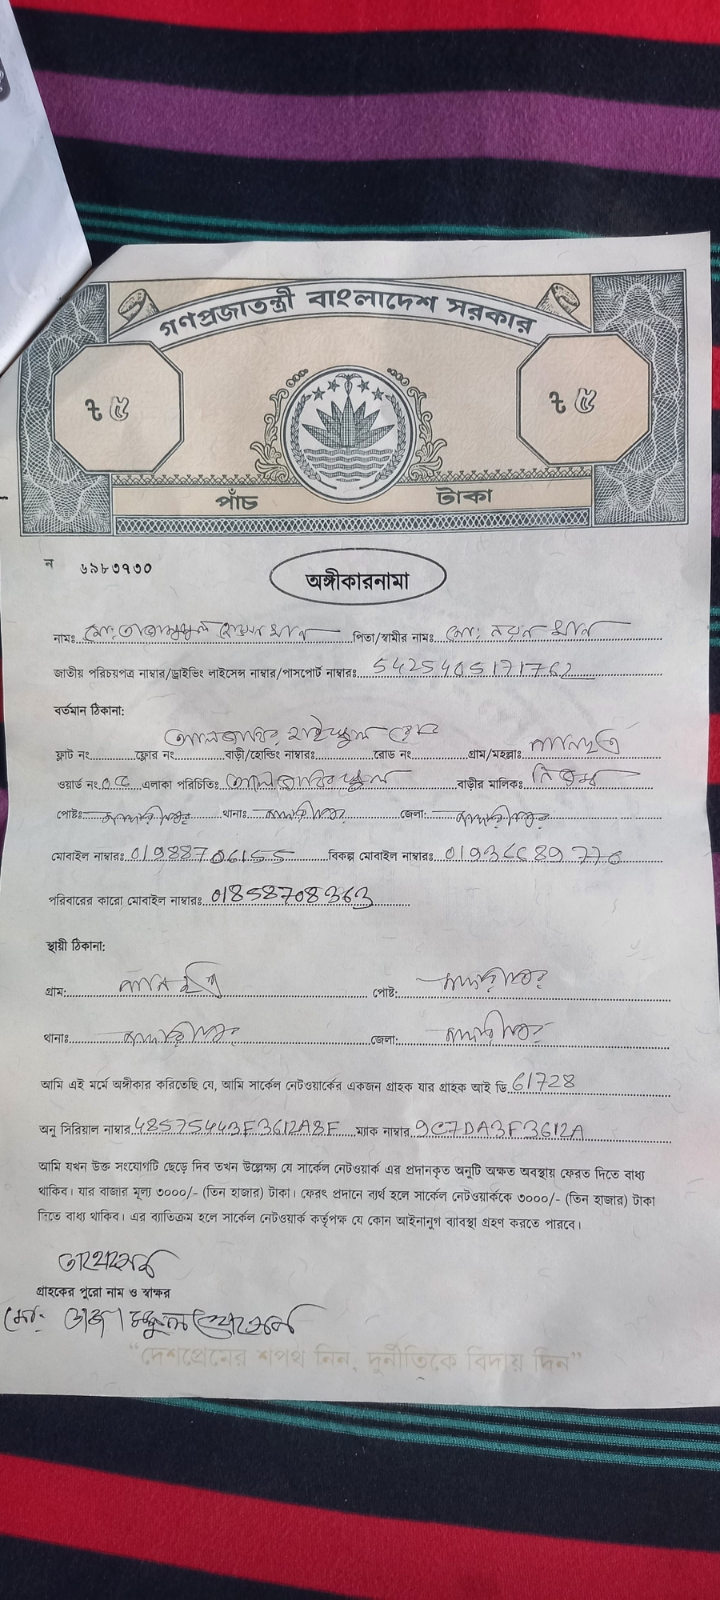 গণপ্রজাতন্ত্রী বাংলাদেশ সরকার
৳ ৫ ৳ ৫
পাঁচ টাকা
ন ৬৯৮৩৭৩০
অঙ্গীকারনামা
নামঃ মো: পিতা/স্বামীর নামঃ মো: নয়ন খান
জাতীয় পরিচয়পত্র নাম্বার/ড্রাইভিং লাইসেন্স নাম্বার/পাসপোর্ট নাম্বারঃ 5425405171762
বর্তমান ঠিকানা:
ফ্লাট নং ফ্লোর নং বাড়ী/হোল্ডিং নাম্বারঃ রোড নং গ্রাম/মহল্লাঃ
ওয়ার্ড নং এলাকা পরিচিতিঃ বাড়ীর মালিকঃ নিজস্ব
পোষ্টঃ মাদারীপুর থানাঃ মাদারীপুর জেলা: মাদারীপুর
মোবাইল নাম্বারঃ 01988706155 বিকল্প মোবাইল নাম্বারঃ
পরিবারের কারো মোবাইল নাম্বারঃ 01858708363
স্থায়ী ঠিকানা:
গ্রাম: পোষ্ট: মাদারীপুর
থানাঃ মাদারীপুর জেলা: মাদারীপুর
আমি এই মর্মে অঙ্গীকার করিতেছি যে, আমি সার্কেল নেটওয়ার্কের একজন গ্রাহক যার গ্রাহক আই ডি 61728
অনু সিরিয়াল নাম্বার 48575443F3612A3F ম্যাক নাম্বার 9C7DA3F3612A
আমি যখন উক্ত সংযোগটি ছেড়ে দিব তখন উল্লেক্ষ্য যে সার্কেল নেটওয়ার্ক এর প্রদানকৃত অনুটি অক্ষত অবস্থায় ফেরত দিতে বাধ্য
থাকিব। যার বাজার মূল্য ৩০০০/- (তিন হাজার) টাকা। ফেরৎ প্রদানে ব্যর্থ হলে সার্কেল নেটওয়ার্ককে ৩০০০/- (তিন হাজার) টাকা
দিতে বাধ্য থাকিব। এর ব্যাতিক্রম হলে সার্কেল নেটওয়ার্ক কর্তৃপক্ষ যে কোন আইনানুগ ব্যাবস্থা গ্রহণ করতে পারবে।
গ্রাহকের পুরো নাম ও স্বাক্ষর
মো:
“দেশপ্রেমের শপথ নিন, দুর্নীতিকে বিদায় দিন”